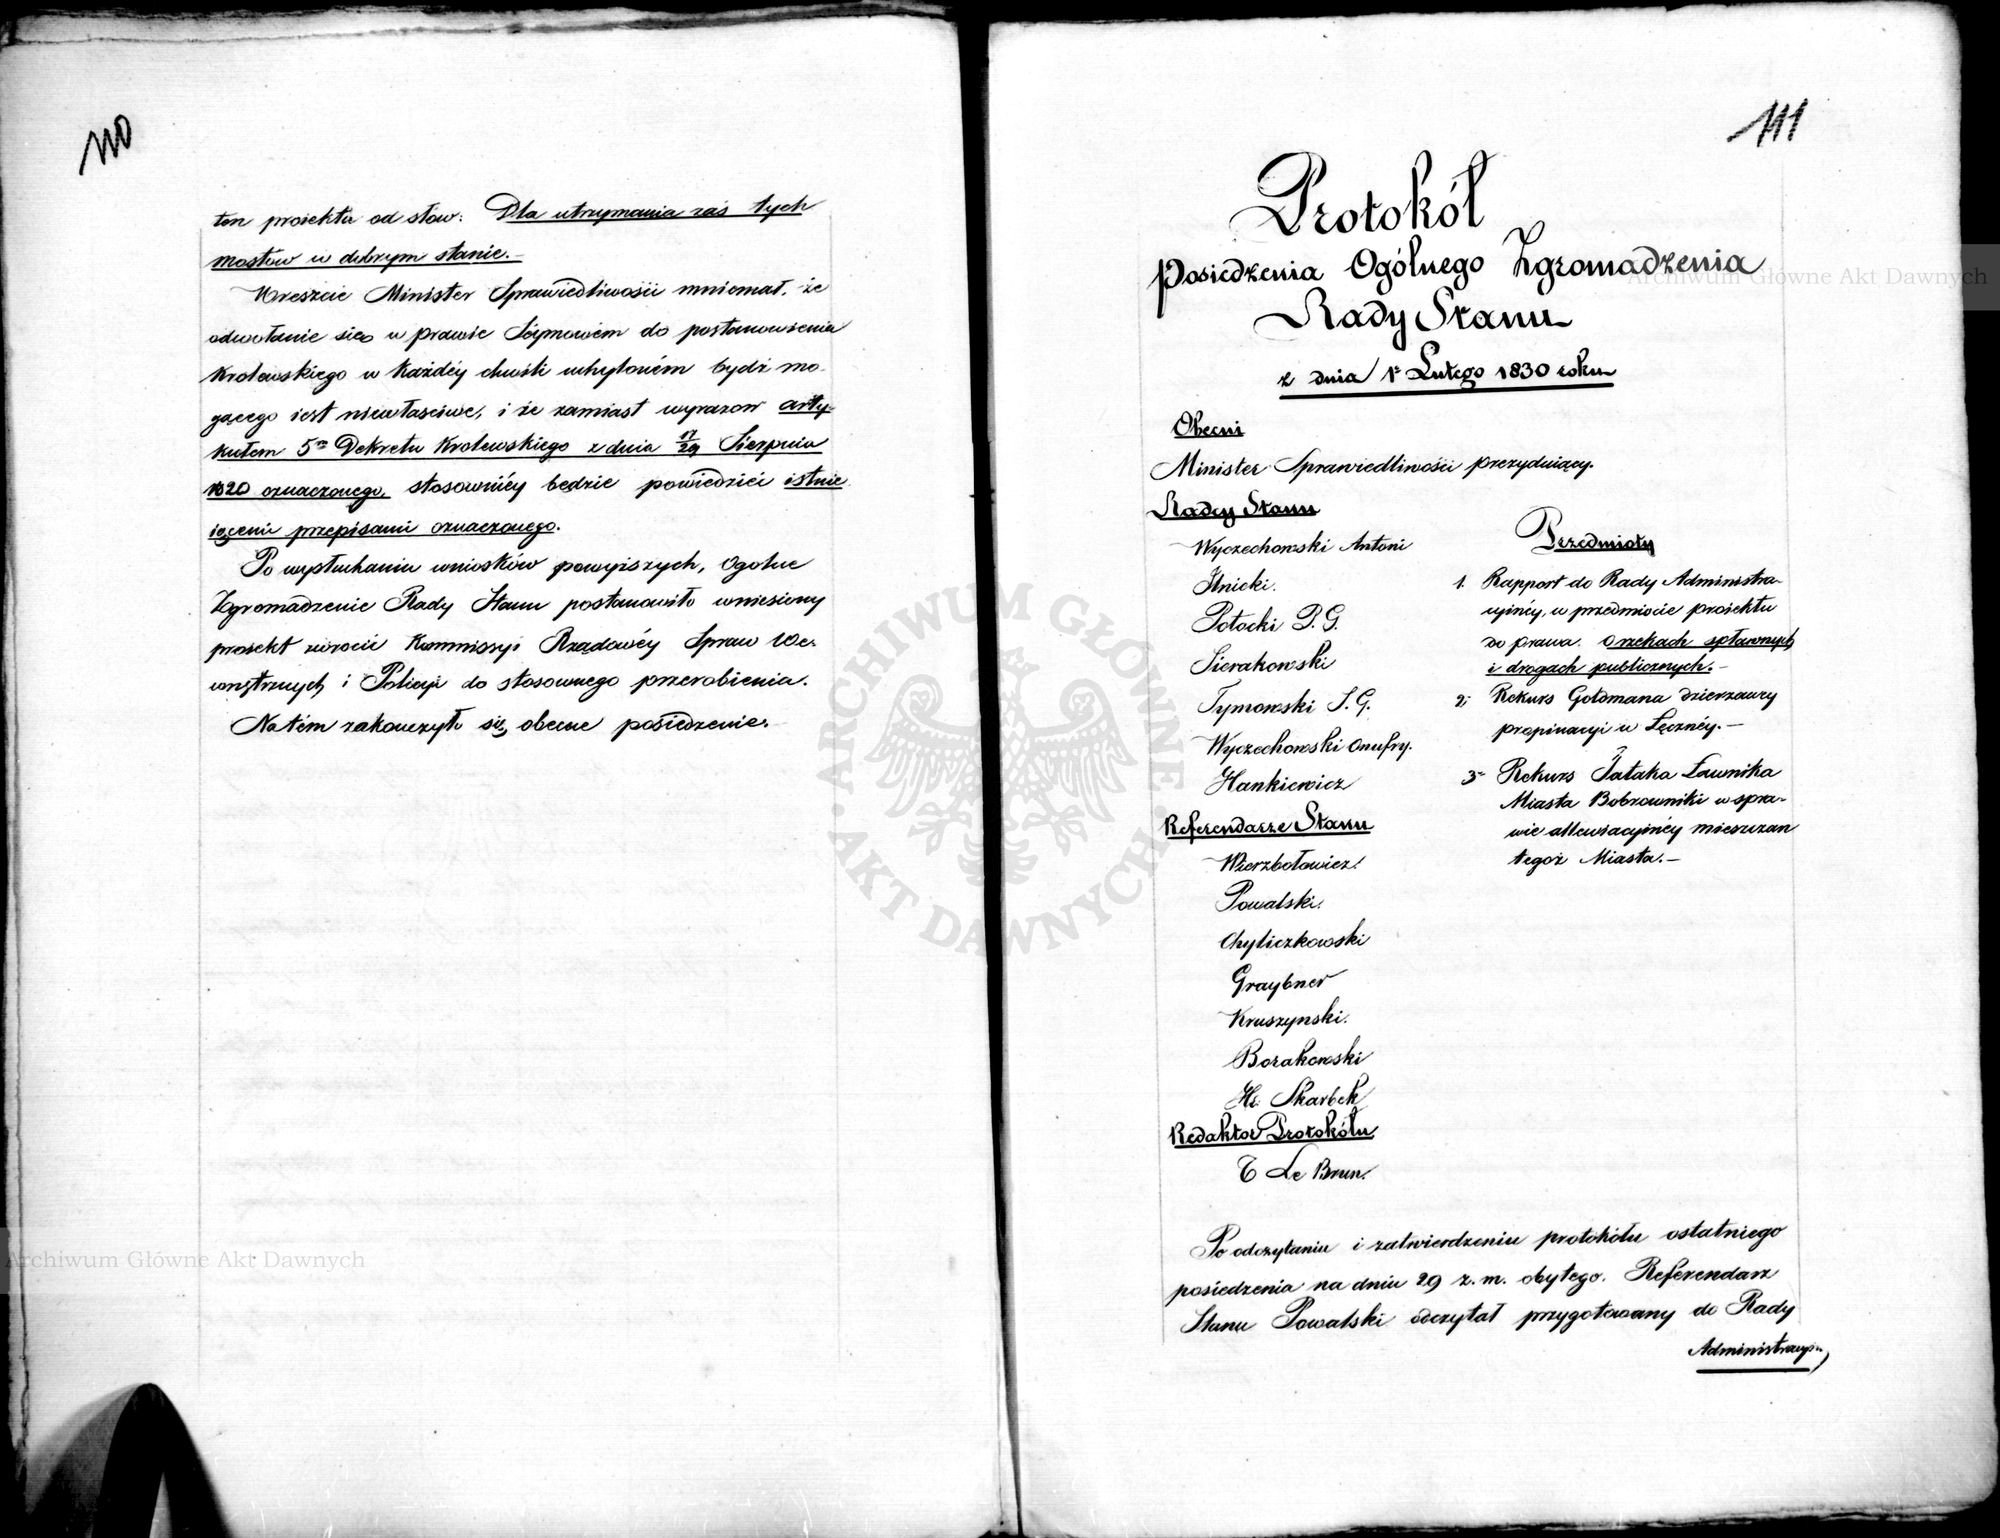 110
ten proiektu od słow: Dla utrzymania zaś tych
mostów w dobrym stanie.–
Wreszcie Minister Sprawiedliwości mniemał, że
odwołanie się w prawie Seymowém do postanowienia
Krolewskiego w każdéy chwili uchyloném bydź mo-
gącego iest niewłaściwe, i że zamiast wyrazow arty-
kułem 5m Dekretu Krolewskiego z dnia 17/29 Sierpnia
1820 oznaczonego, stosowniéy będzie powiedziéć istnie-
iącemi przepisami oznaczonego.
Po wysłuchaniu wniosków powyższych, Ogolne
Zgromadzenie Rady Stanu postanowiło wniesiony
proiekt zwrocić Kommissyi Rządowéy Spraw We-
wnętrznych i Policyi do stosownego przerobienia.
Na tém zakończyło się obecne posiedzenie.
111
Protokół
Posiedzenia Ogólnego Zgromadzenia
Rady Stanu
z dnia 1o Lutego 1830 roku
Obecni
Minister Sprawiedliwości prezyduiący.
Radcy Stanu
Wyczechowski Antoni
Ilnicki.
Potocki P. G.
Sierakowski
Tymowski S. G.
Wyczechowski Onufry.
Hankiewicz
Referendarze Stanu
Wierzbołowicz.
Powalski.
Chyliczkowski
Graybner
Kruszynski.
Borakowski
Hr. Skarbek
Redaktor Protokółu
T Le Brun.
Przedmioty
1. Rapport do Rady Administra-
cyinéy, w przedmiocie proiektu
do prawa o rzekach spławnych
i drogach publicznych.–
2. Rekurs Goldmana dzierzawcy
propinacyi w Łęcznéy.–
3. Rekurs Jataka Ławnika
Miasta Bobrowniki w spra-
wie allewiacyinéy mieszczan
tegoż Miasta.–
Po odczytaniu i zatwierdzeniu protokółu ostatniego
posiedzenia na dniu 29 z. m. obytego. Referendarz
Stanu Powalski odczytał przygotowany do Rady
Administracyi
Archiwum Główne Akt Dawnych
Archiwum Główne Akt Dawnych
ARCHIWUM GŁÓWNE AKT DAWNYCH